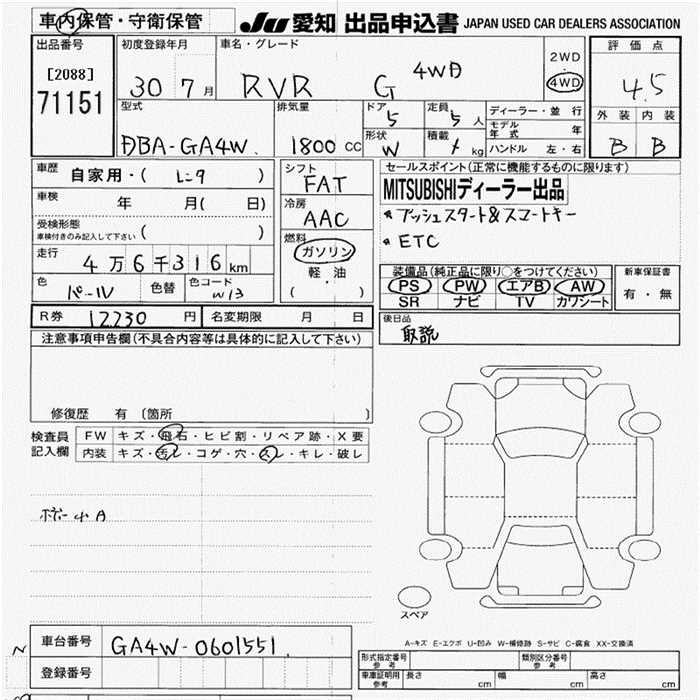 車内保管・守衛保管 JU 愛知 出品申込書 JAPAN USED CAR DEALERS ASSOCIATION
出品番号 初度登録年月 車名・グレード 2WD 評価点
[2088] 30 7月 RVR G 4WD 4WD 4.5
71151
型式 排気量 ドア 5 定員 5人 ディーラー・並行 外装 内装
モデル年式 年
DBA-GA4W 1800CC 形状 W 積載 kg ハンドル 左・右 B B
車歴 自家用・( レンタ ) シフト FAT セールスポイント(正常に機能するものに限ります)
車検 年 月( 日) 冷房 AAC MITSUBISHIディーラー出品
受検形態 ( ) プッシュスタート&スマートキー
車検付きのみ記入して下さい 燃料 ガソリン ETC
走行 4万6千316km 軽・油
( ) 装備品(純正品に限り○をつけてください) 新車保証書
色 パール 色替 色コード W13 PS PW エアB AW 有・無
SR ナビ TV カワシート
R券 12230円 名変期限 月 日 後日品
取説
注意事項申告欄(不具合内容等は具体的に記入して下さい)
修復歴 有 〔箇所 〕
検査員 FW キズ・飛石・ヒビ割・リペア跡・X要
記入欄 内装 キズ・汚レ・コゲ・穴・スレ・キレ・破レ
ボデー小A
スペア
A-キズ E-エクボ U-凹み W-補修跡 S-サビ C-腐食 XX-交換済
車台番号 GA4W-0601551
登録番号
形式指定番号 参考 類別区分番号 参考
車庫証明用 参考 長さ cm 幅 cm 高さ cm